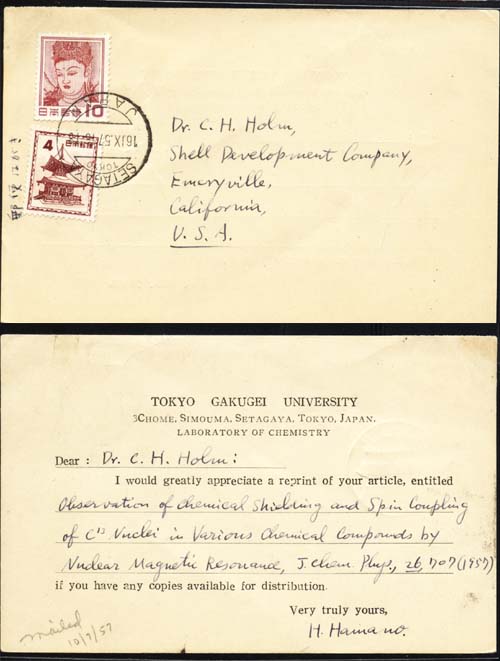 10
日本郵便
4
日本郵便
SETAGAYA
TOKYO
16.IX.57
JAPAN
Dr. C. H. Holm,
Shell Development Company,
Emeryville,
California,
U. S. A.
TOKYO GAKUGEI UNIVERSITY
3CHOME, SIMOUMA, SETAGAYA, TOKYO, JAPAN.
LABORATORY OF CHEMISTRY
Dear : Dr. C. H. Holm:
I would greatly appreciate a reprint of your article, entitled
Observation of Chemical Shielding and Spin Coupling
of C13 Nuclei in Various Chemical Compounds by
Nuclear Magnetic Resonance, J. Chem. Phys., 26, 707 (1957)
if you have any copies available for distribution.
Very truly yours,
H. Hamano.
mailed
10/7/57